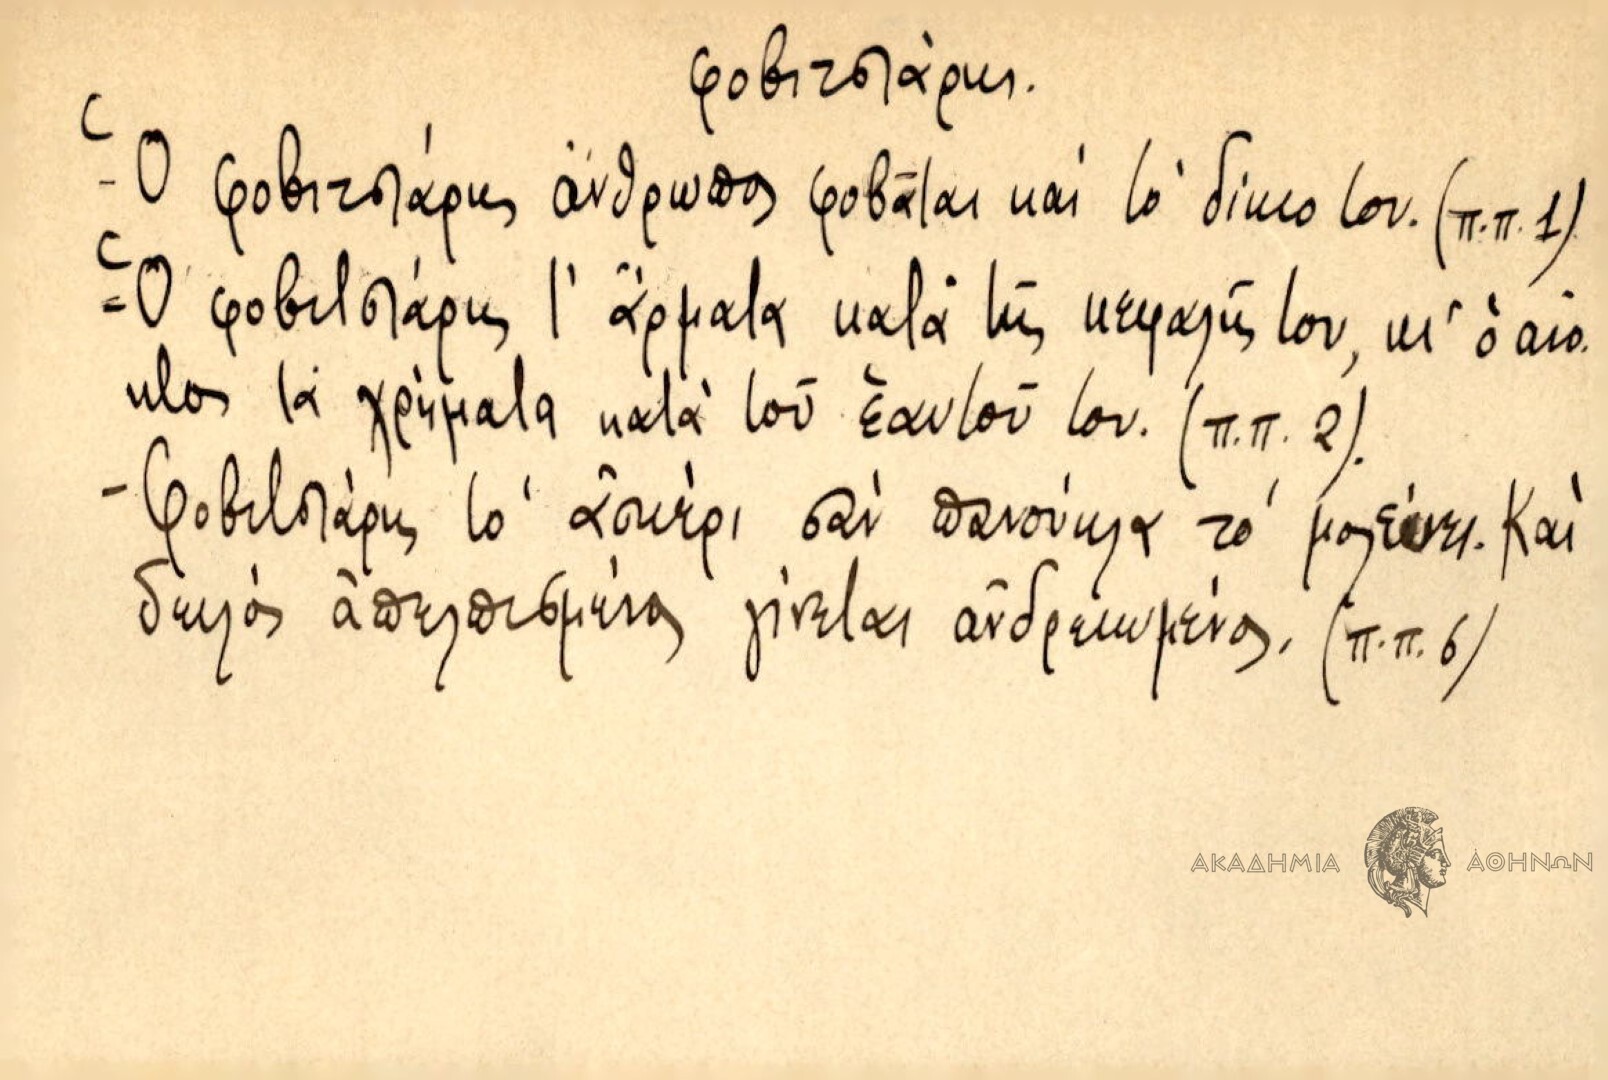 φοβιτσιάρης.
- Ὁ φοβιτσιάρης ἄνθρωπος φοβᾶται καί τό δίκιο του. (π.π. 1)
= Ὁ φοβετσιάρης τ' ἄρματα κατά τῆς κεφαλῆς του, κι' ὁ
τά χρήματα κατά τοῦ ἑαυτοῦ του. (π.π. 2).
- Φοβετσιάρης τό ἀσκέρι σάν πανούκλα τό μολεύει. Καί
δειλός ἀπελπισμένος γίνεται ἀνδρειωμένος. (π.π. 6)
ΑΚΑΔΗΜΙΑ ΑΘΗΝΩΝ